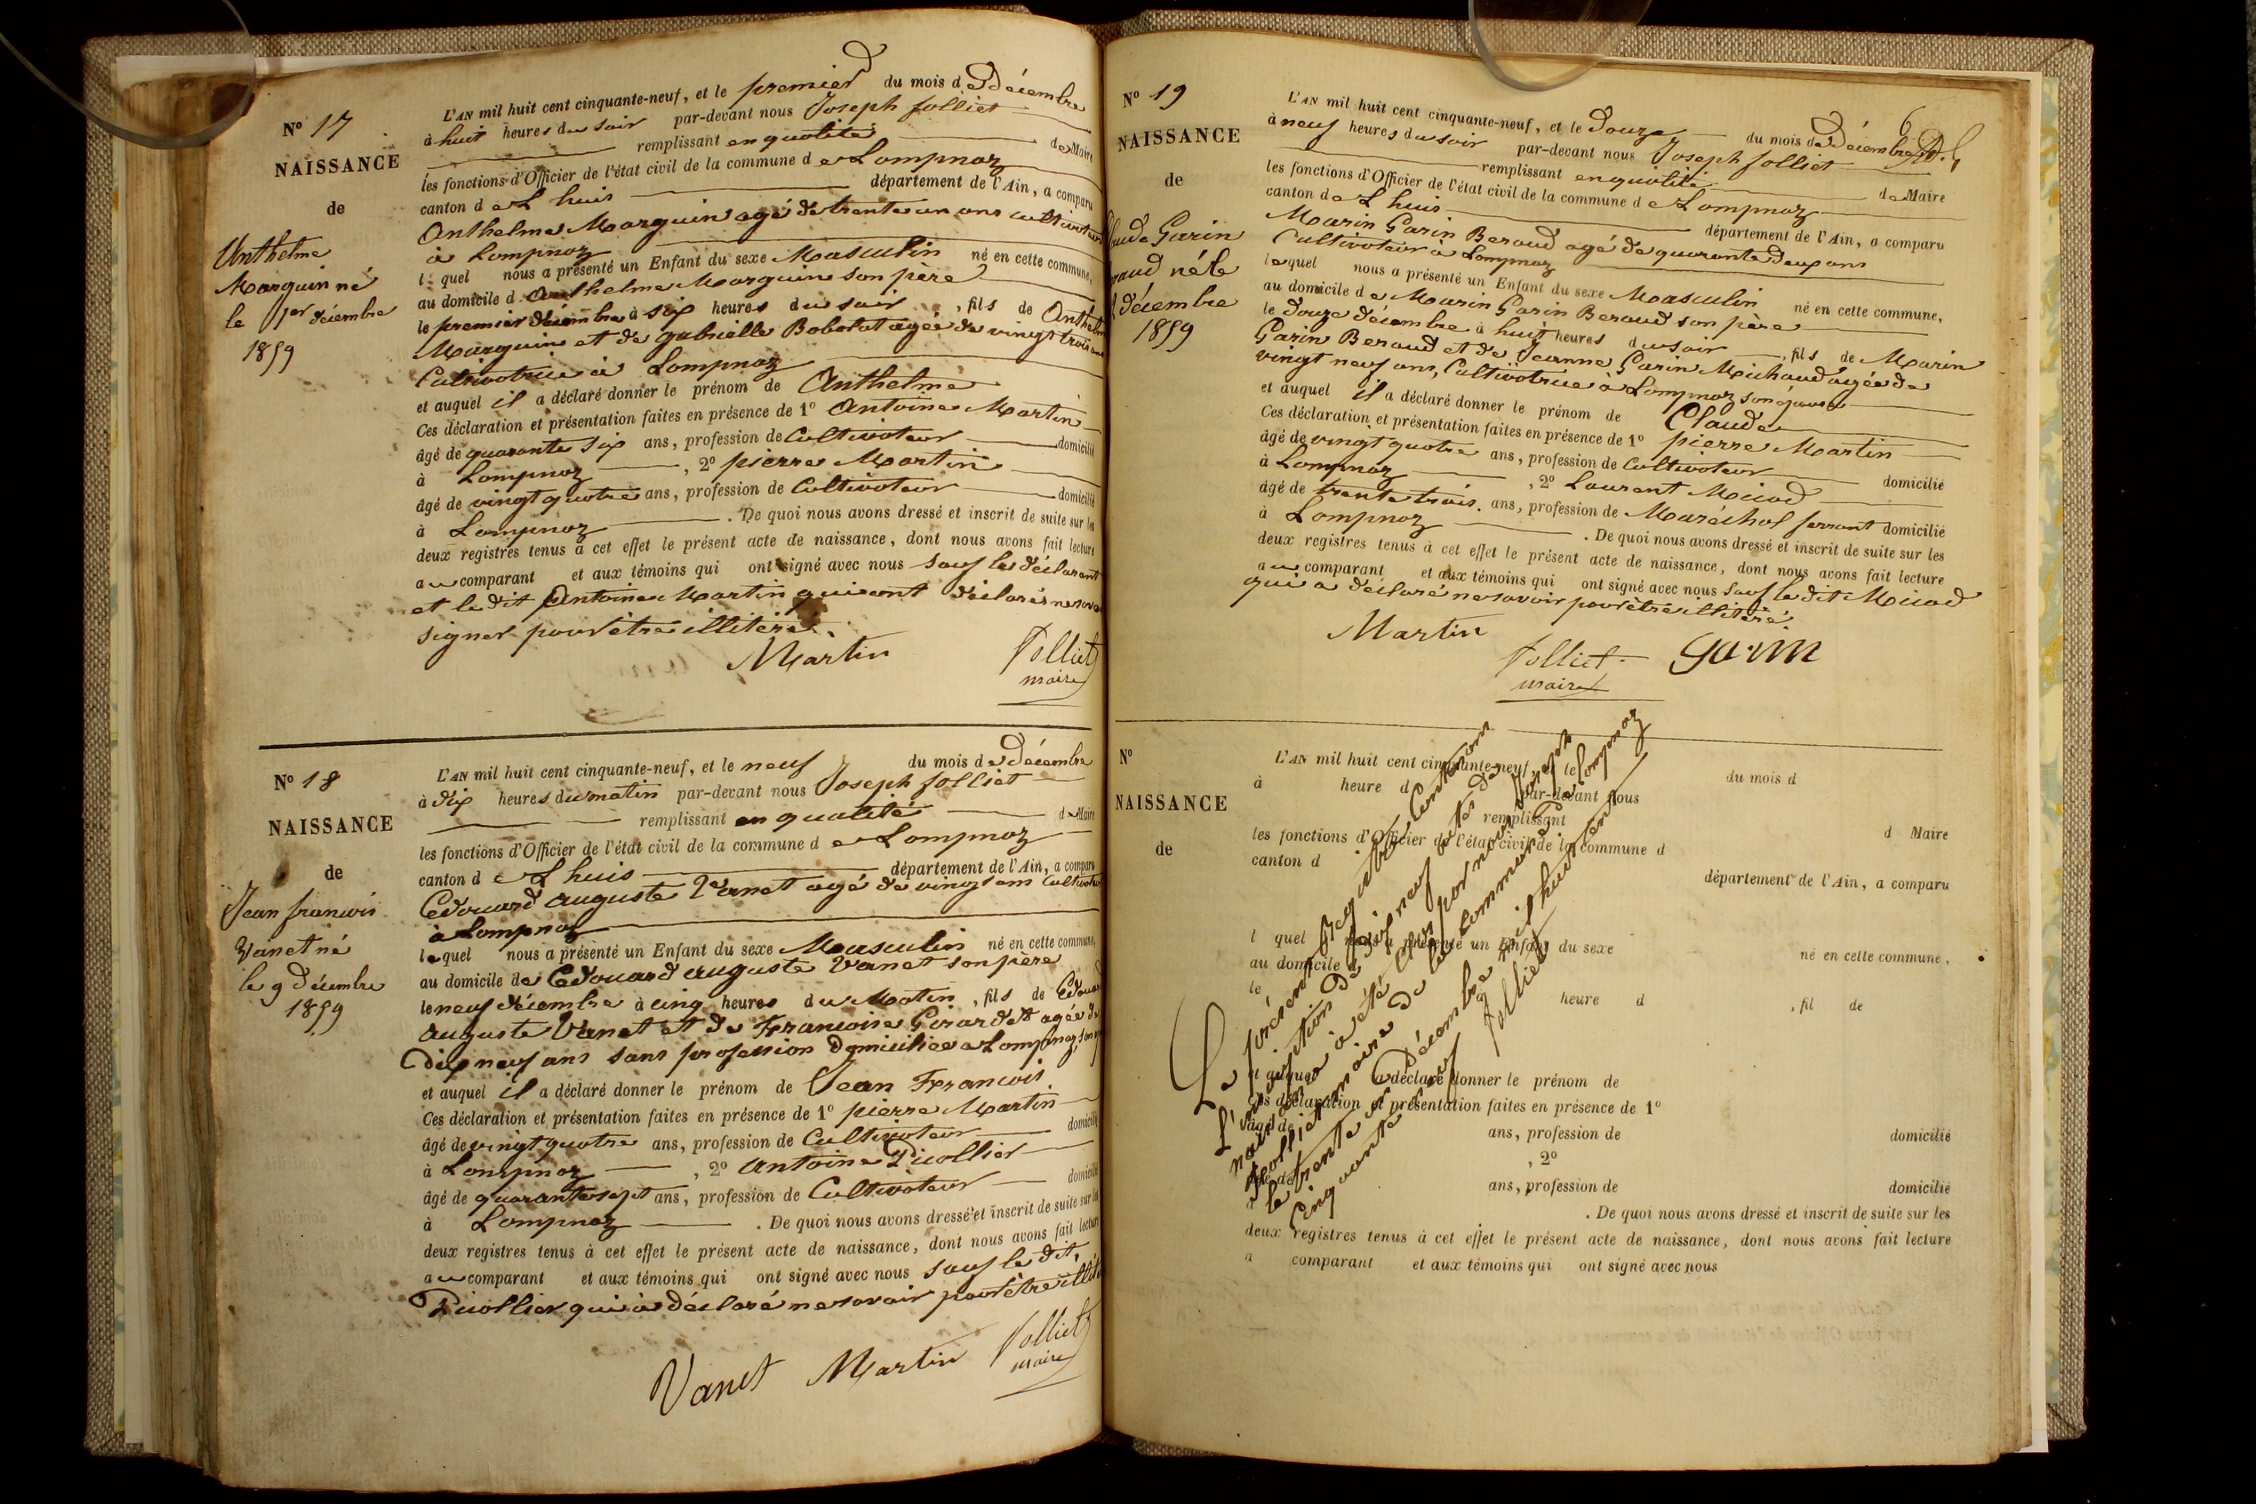 N° 17
NAISSANCE
de
Anthelme
Marquin né
le 1er décembre
1859
L'AN mil huit cent cinquante-neuf, et le premier du mois de Décembre
à huit heures du soir par-devant nous Joseph Jolliet
remplissant en qualité de Maire
les fonctions d'Officier de l'état civil de la commune de Lompnaz
canton de L huis département de l'Ain, a comparu
Anthelme Marquin agé de trente un ans cultivateur
à Lompnaz
l quel nous a présenté un Enfant du sexe Masculin né en cette commune,
au domicile d Anthelme Marquin son père
le premier décembre à six heures du soir, fils de Anthelme
Marquin et de gabrielle Bobolat agée de vingt trois ans
Cultivatrice à Lompnaz
et auquel il a déclaré donner le prénom de Anthelme
Ces déclaration et présentation faites en présence de 1° Antoine Martin
âgé de quarante six ans, profession de Cultivateur domicilié
à Lompnaz, 2° pierre Martin
âgé de vingt quatre ans, profession de Cultivateur domicilié
à Lompnaz. De quoi nous avons dressé et inscrit de suite sur les
deux registres tenus à cet effet le présent acte de naissance, dont nous avons fait lecture
au comparant et aux témoins qui ont signé avec nous sauf le déclarant
et le dit Antoine Martin qui ont déclarés ne savoir
signer pour être illitéré.
Martin Jolliet
maire
N° 18
NAISSANCE
de
Jean francois
Vanet né
le 9 Décembre
1859
L'AN mil huit cent cinquante-neuf, et le neuf du mois de Décembre
à dix heures du matin par-devant nous Joseph Jolliet
remplissant en qualité de Maire
les fonctions d'Officier de l'état civil de la commune de Lompnaz
canton de L huis département de l'Ain, a comparu
Edouard auguste Vanet agé de vingt ans Cultivateur
à Lompnaz
lequel nous a présenté un Enfant du sexe Masculin né en cette commune,
au domicile de Edouard auguste Vanet son père
le neuf décembre à cinq heures du Matin, fils de Edouard
auguste Vanet et de Francoise Girardet agée de
dix neuf ans sans profession Domiciliée à Lompnaz
et auquel il a déclaré donner le prénom de Jean Francois
Ces déclaration et présentation faites en présence de 1° pierre Martin
âgé de vingt quatre ans, profession de Cultivateur domicilié
à Lompnaz, 2° Antoine Picollier
âgé de quarante sept ans, profession de Cultivateur domicilié
à Lompnaz. De quoi nous avons dressé et inscrit de suite sur les
deux registres tenus à cet effet le présent acte de naissance, dont nous avons fait lecture
au comparant et aux témoins qui ont signé avec nous sauf le dit
Picollier qui à déclaré ne savoir pour être illitéré
Vanet Martin Jolliet
maire
N° 19
NAISSANCE
de
Claude Garin
Beraud né le
décembre
1859
6
L'AN mil huit cent cinquante-neuf, et le douze du mois de Décembre
à neuf heures du soir par-devant nous Joseph Jolliet
remplissant en qualité de Maire
les fonctions d'Officier de l'état civil de la commune de Lompnaz
canton de L huis département de l'Ain, a comparu
Marin Garin Beraud agé de quarante deux ans
Cultivateur à Lompnaz
lequel nous a présenté un Enfant du sexe Masculin né en cette commune,
au domicile de Marin Garin Beraud son père
le douze décembre à huit heures du soir, fils de Marin
Garin Beraud et de Jeanne Garin Michaud agée de
vingt neuf ans, Cultivatrice à Lompnaz son épouse
et auquel il a déclaré donner le prénom de Claude
Ces déclaration et présentation faites en présence de 1° pierre Martin
âgé de vingt quatre ans, profession de Cultivateur domicilié
à Lompnaz, 2° Laurent Micod
âgé de trente trois ans, profession de Maréchal ferrant domicilié
à Lompnaz. De quoi nous avons dressé et inscrit de suite sur les
deux registres tenus à cet effet le présent acte de naissance, dont nous avons fait lecture
au comparant et aux témoins qui ont signé avec nous sauf le dit Micod
qui a déclaré ne savoir pour être illitéré.
Martin Jolliet garin
maire
N°
NAISSANCE
de
L'AN mil huit cent cinquante-neuf, et le du mois d
à heure d par-devant nous
remplissant d Maire
les fonctions d'Officier de l'état civil de la commune d
canton d département de l'Ain, a comparu
l quel nous a présenté un Enfant du sexe né en cette commune,
au domicile d
le à heure d, fil de
et auquel a déclaré donner le prénom de
Ces déclaration et présentation faites en présence de 1°
âgé de ans, profession de domicilié
à, 2°
âgé de ans, profession de domicilié
à. De quoi nous avons dressé et inscrit de suite sur les
deux registres tenus à cet effet le présent acte de naissance, dont nous avons fait lecture
a comparant et aux témoins qui ont signé avec nous
Le présent Registre Contenant
L'inscription de dix neuf actes de
naissance à été Clos par nous Joseph
Jolliet maire de la Commune de Lompnaz
le trente un Décembre mil huit cent
Cinquante neuf Jolliet